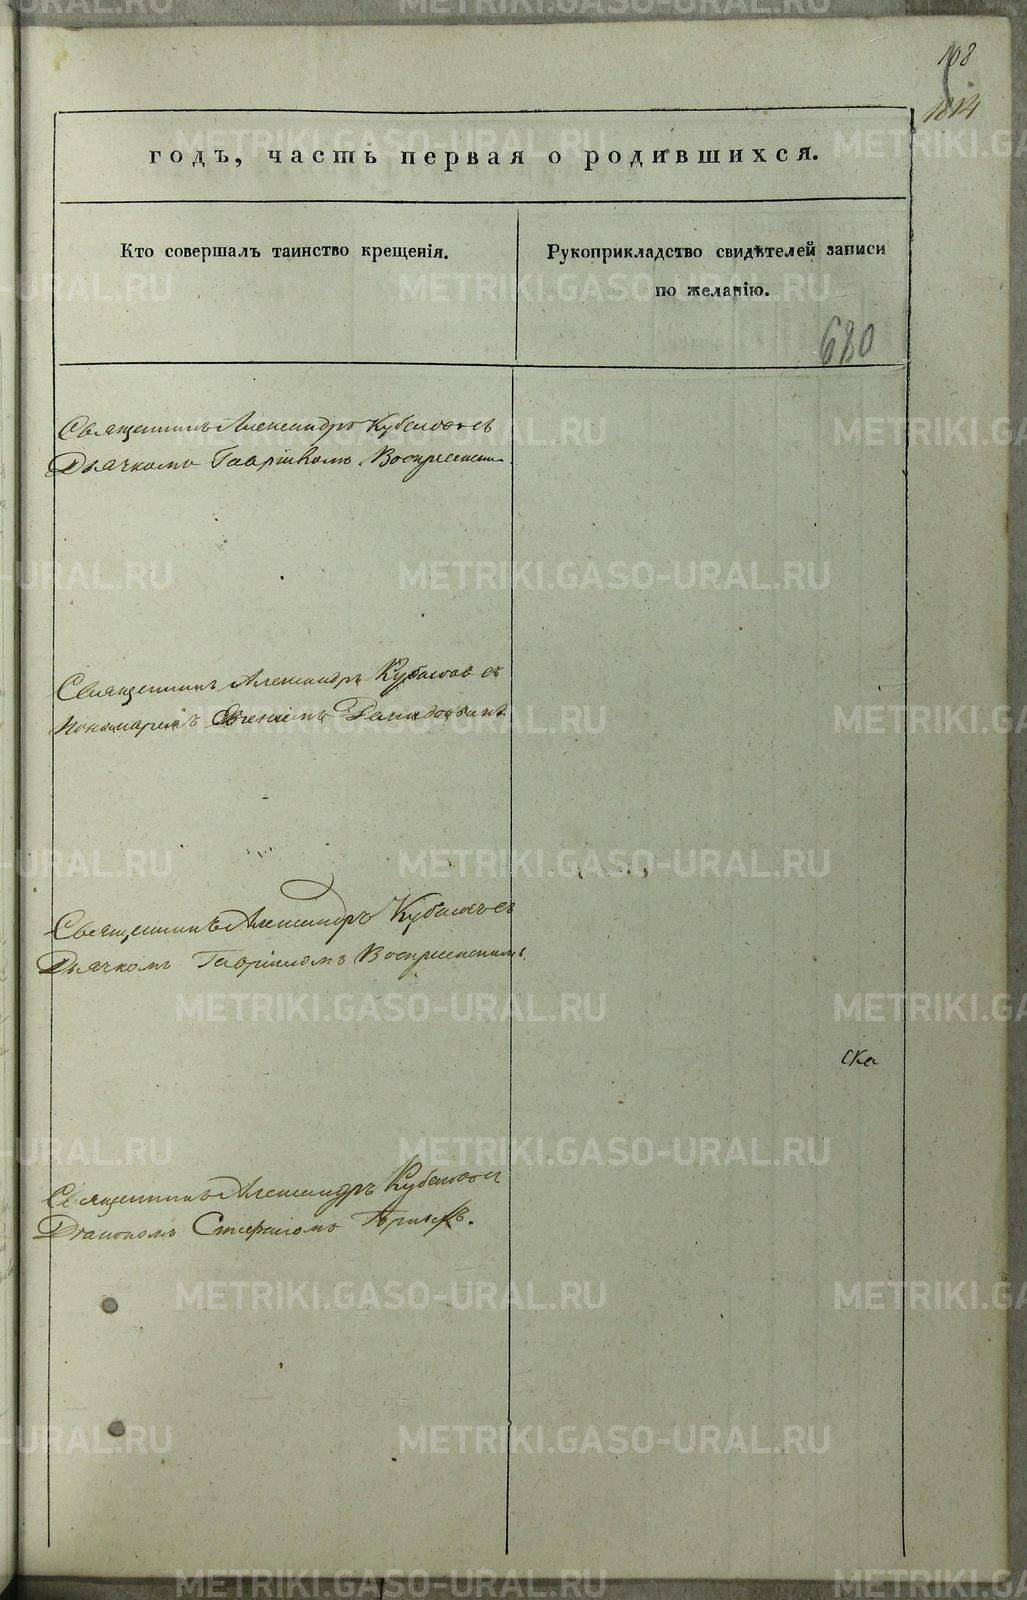 108
1814
годъ, часть первая о родившихся.
Кто совершалъ таинство крещенія.
Рукоприкладство свидѣтелей записи
по желанію.
680
Священникъ Александръ съ
Дьячкомъ Гавріиломъ Воскресенским
Священникъ Александръ съ
пономаремъ Евгеніемъ
Священникъ Александръ съ
Дьячкомъ Гавріиломъ Воскресенскимъ
ска
Священникъ Александръ съ
Діакономъ Стефаномъ
METRIKI.GASO-URAL.RU